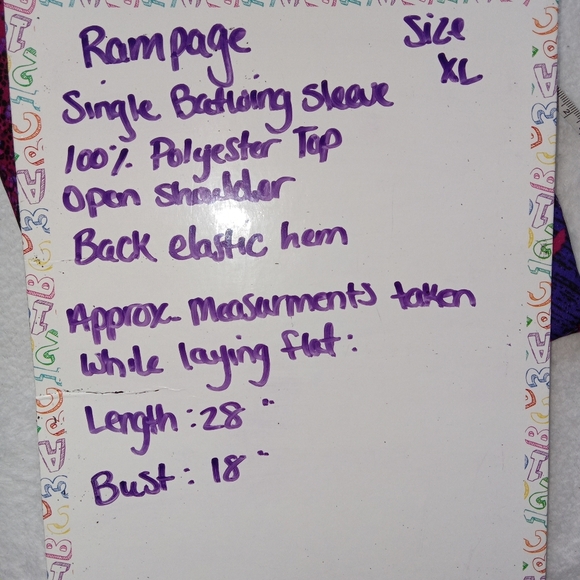 Rampage
Size
XL
Single Batwing Sleeve
100% Polyester Top
Open Shoulder
Back elastic hem
Approx. Measurments taken
While laying flat:
Length: 28"
Bust: 18"